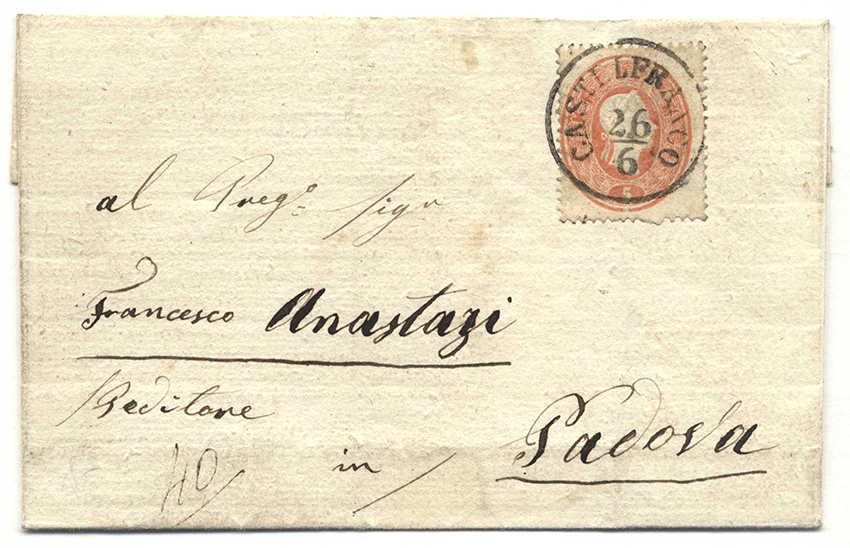 CASTELFRANCO
26
6
5
al Preg.º Sigr
Francesco Anastazi
Speditore
in Padova
40